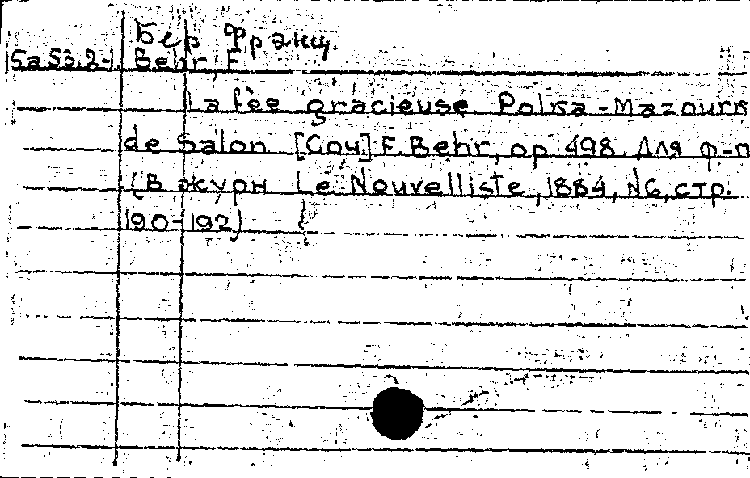 Бер Франц
5a 53.2-1 Behr, F.
La fèe gracieuse Polka-Mazourk
de Salon. [Соч] F. Behr, op 498. Для ф-п
(В журн Le Nouvelliste, 1884, N6, стр.
190-192)